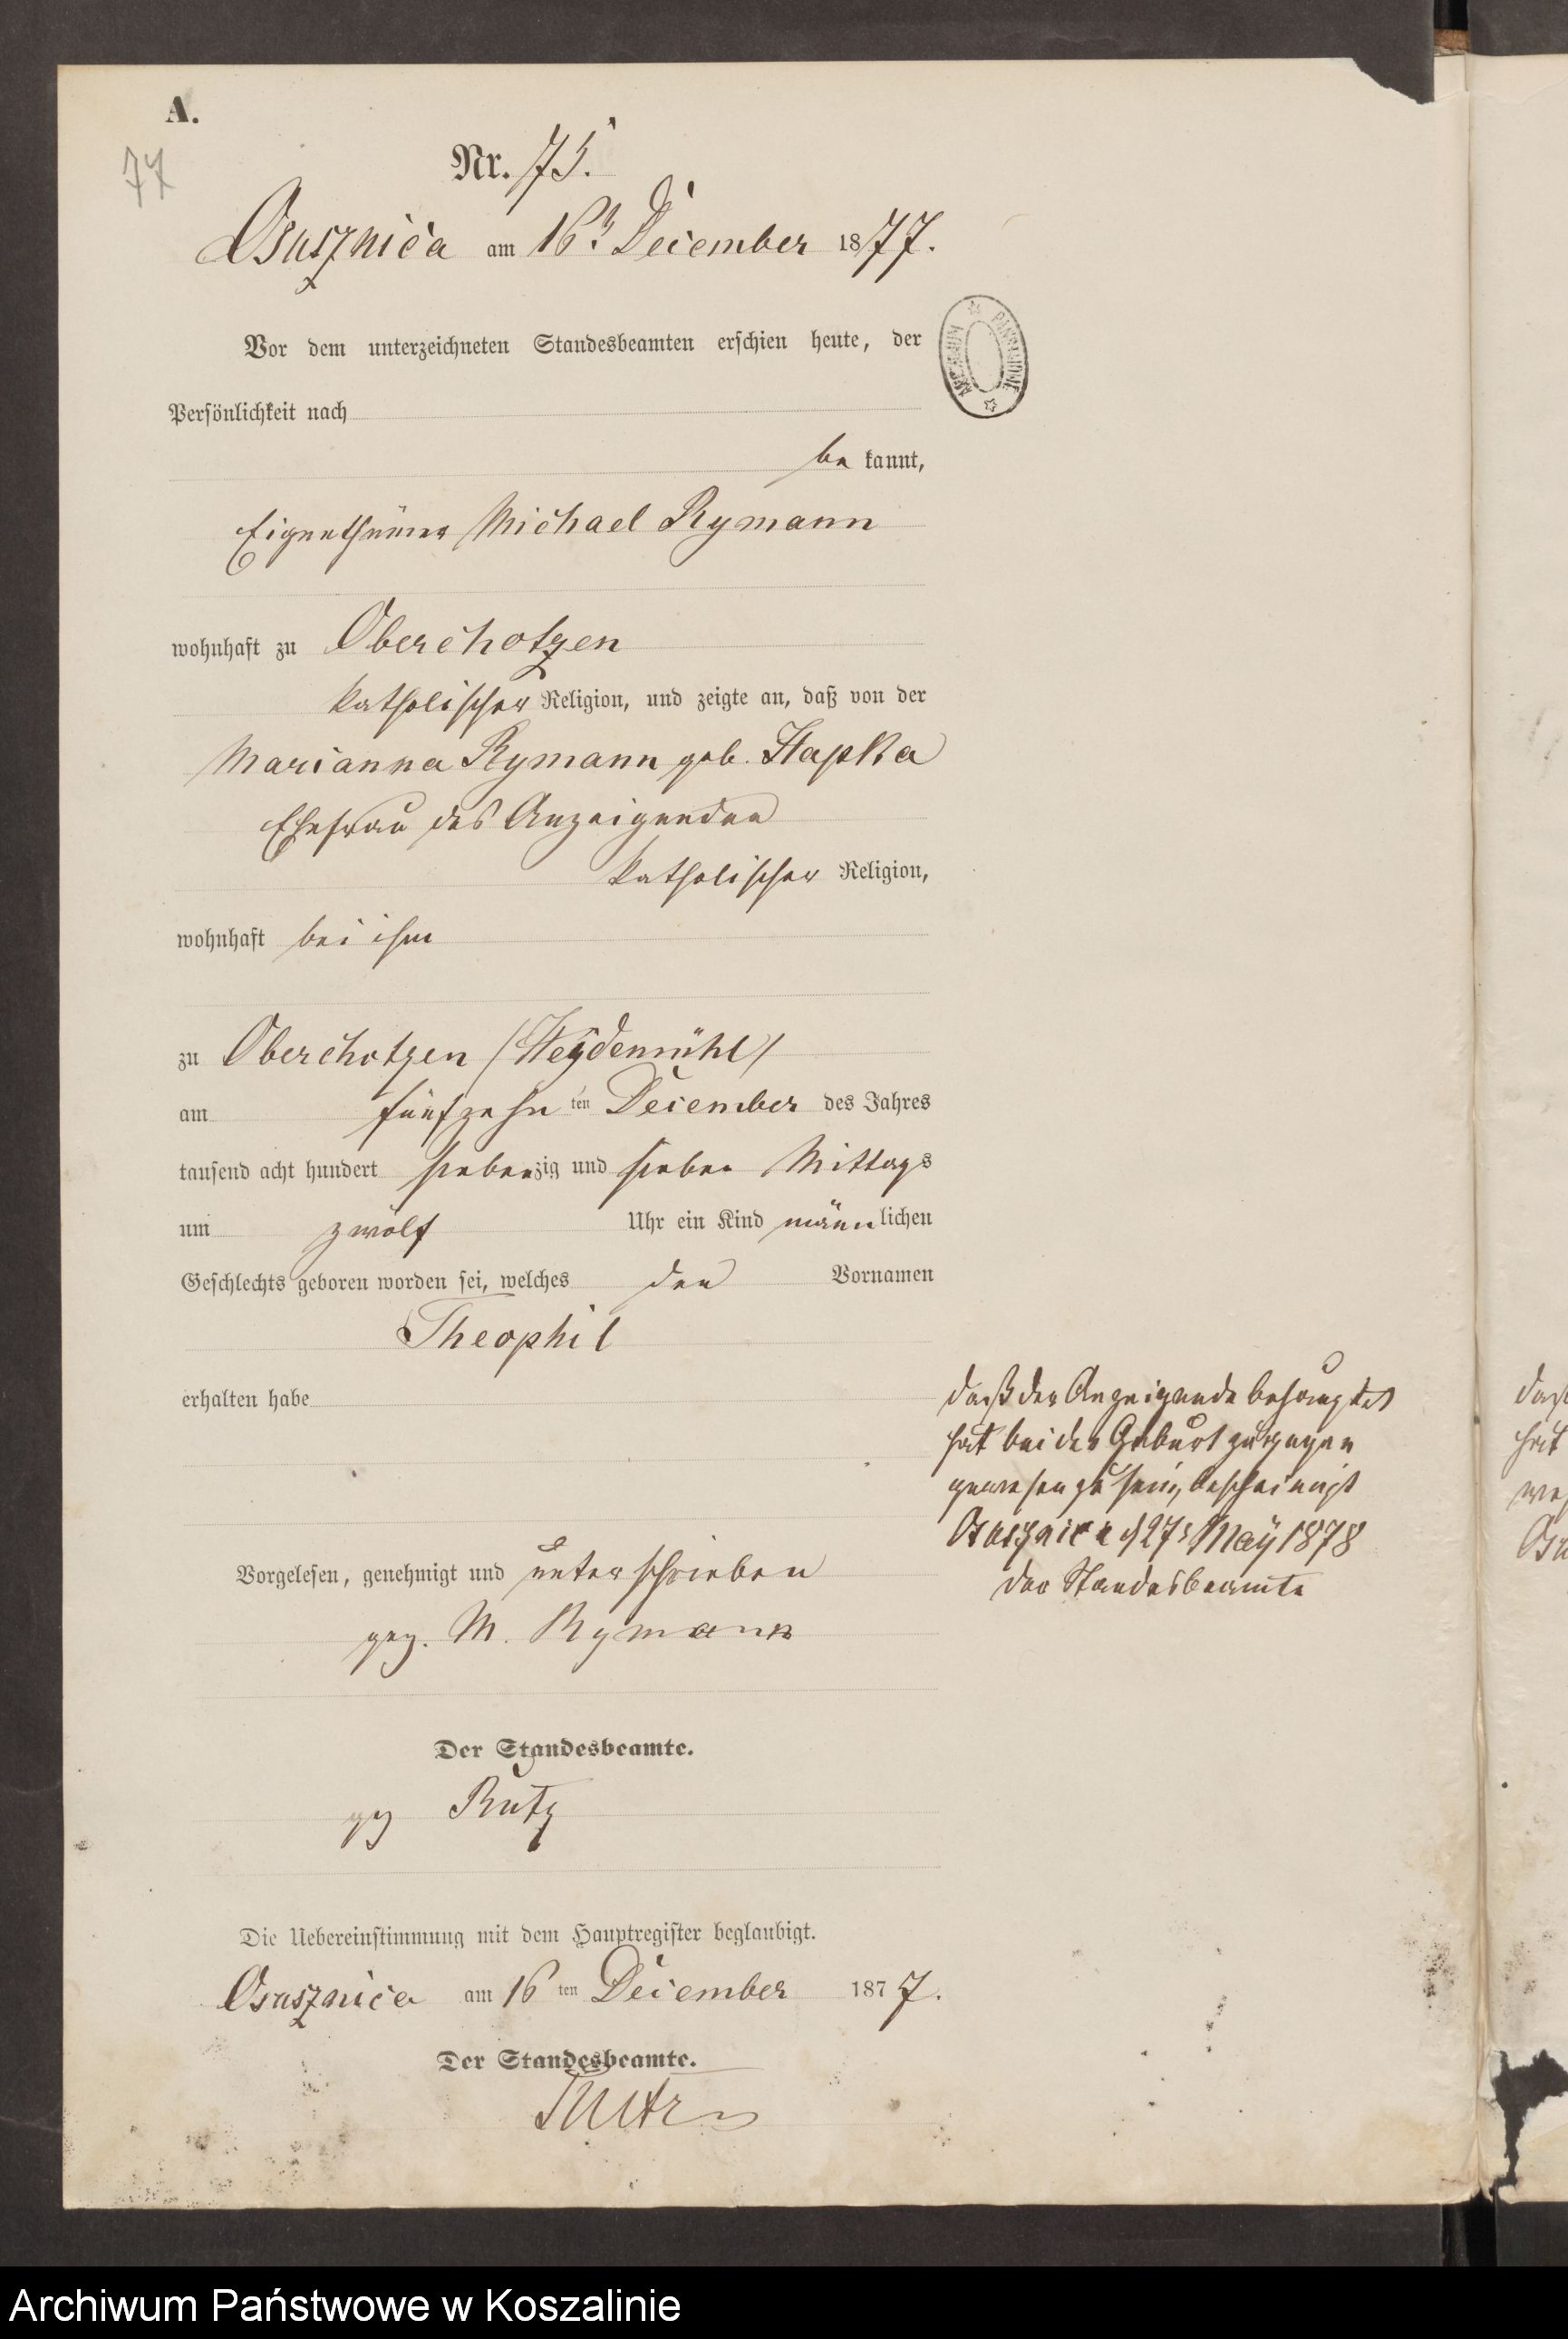 A.
77
Nr. 75.
Osusznica am 16t December 1877.
Vor dem unterzeichneten Standesbeamten erschien heute, der
Persönlichkeit nach
be kannt,
Eigenthümer Michael Rymann
wohnhaft zu Oberchotzen
katholischer Religion, und zeigte an, daß von der
Marianna Rymann geb. Hapka
Ehefrau des Anzeigenden
katholischer Religion,
wohnhaft bei ihm
zu Oberchotzen (Heydemühl)
am fünfzehn ten December des Jahres
tausend acht hundert siebenzig und sieben Mittags
um zwölf Uhr ein Kind männlichen
Geschlechts geboren worden sei, welches den Vornamen
Theophil
erhalten habe
daß der Anzeigende behauptet
hat bei der Geburt zugegen
gewesen zu sein, bescheinigt
Osusznica d 27t May 1878
der Standesbeamte
Vorgelesen, genehmigt und unterschrieben
gez. M. Rymann
Der Standesbeamte.
gez Rutz
Die Uebereinstimmung mit dem Hauptregister beglaubigt.
Osusznica am 16 ten December 1877.
Der Standesbeamte.
Rutz
Archiwum Państwowe w Koszalinie